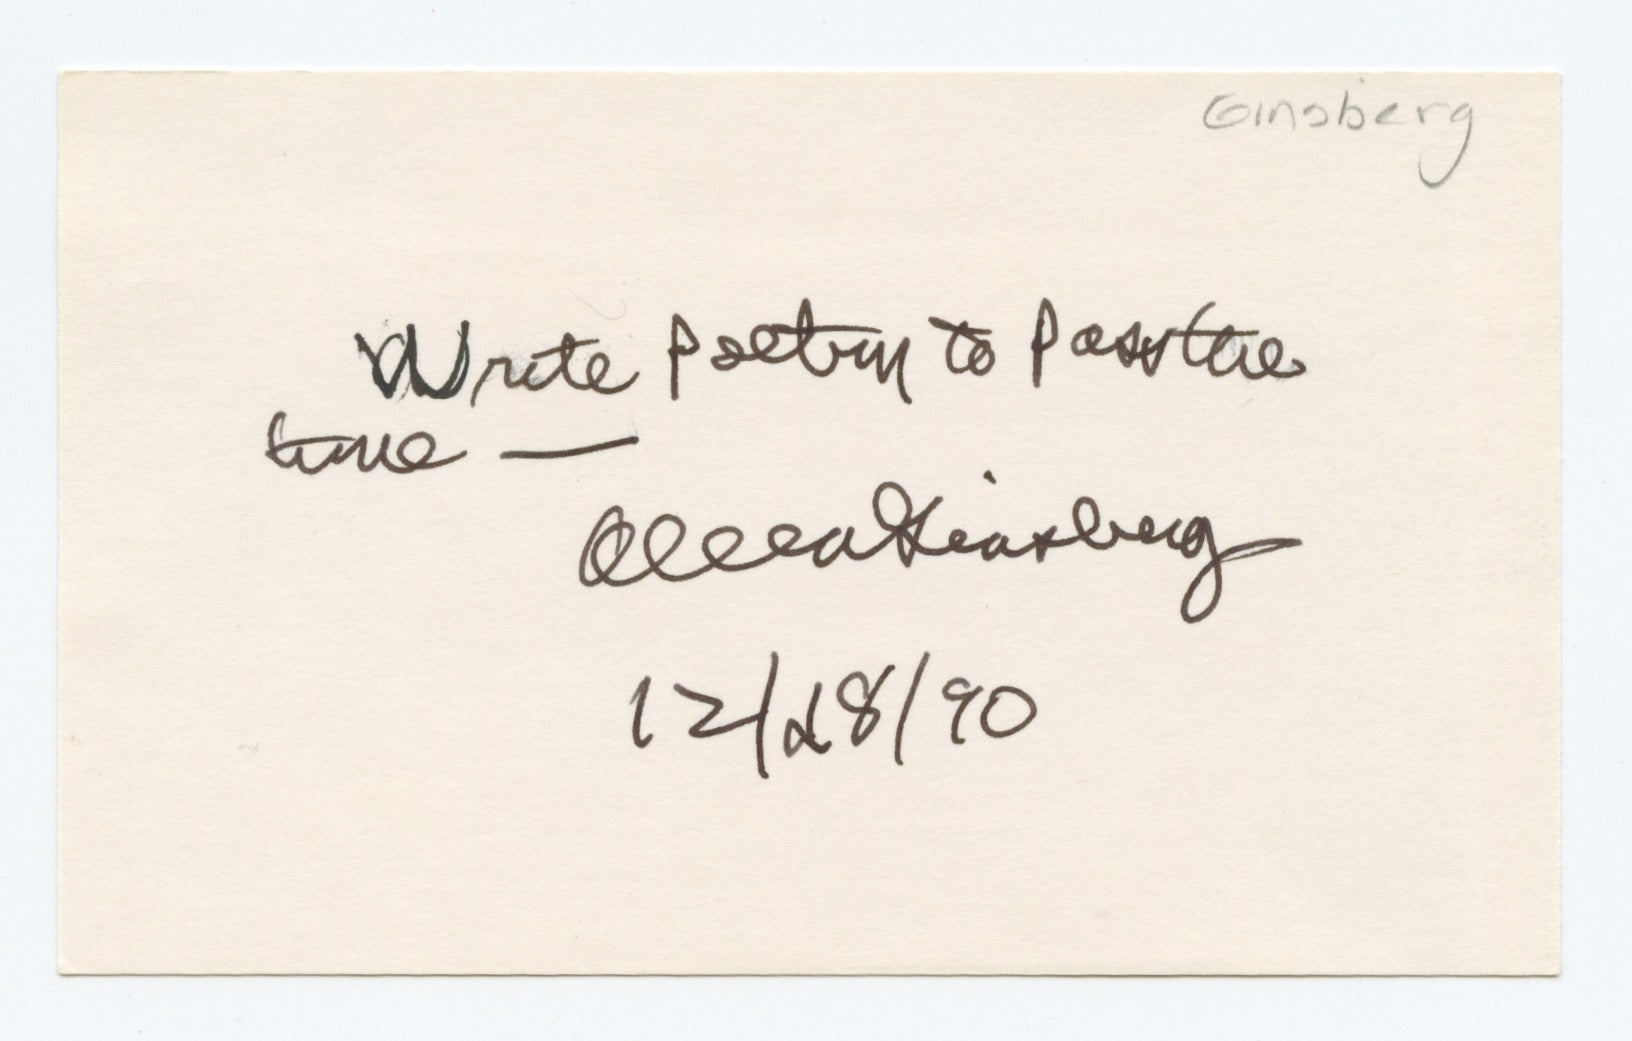 Ginsberg
Write Poetry to Pass the
time —
Allen Ginsberg
12/28/90